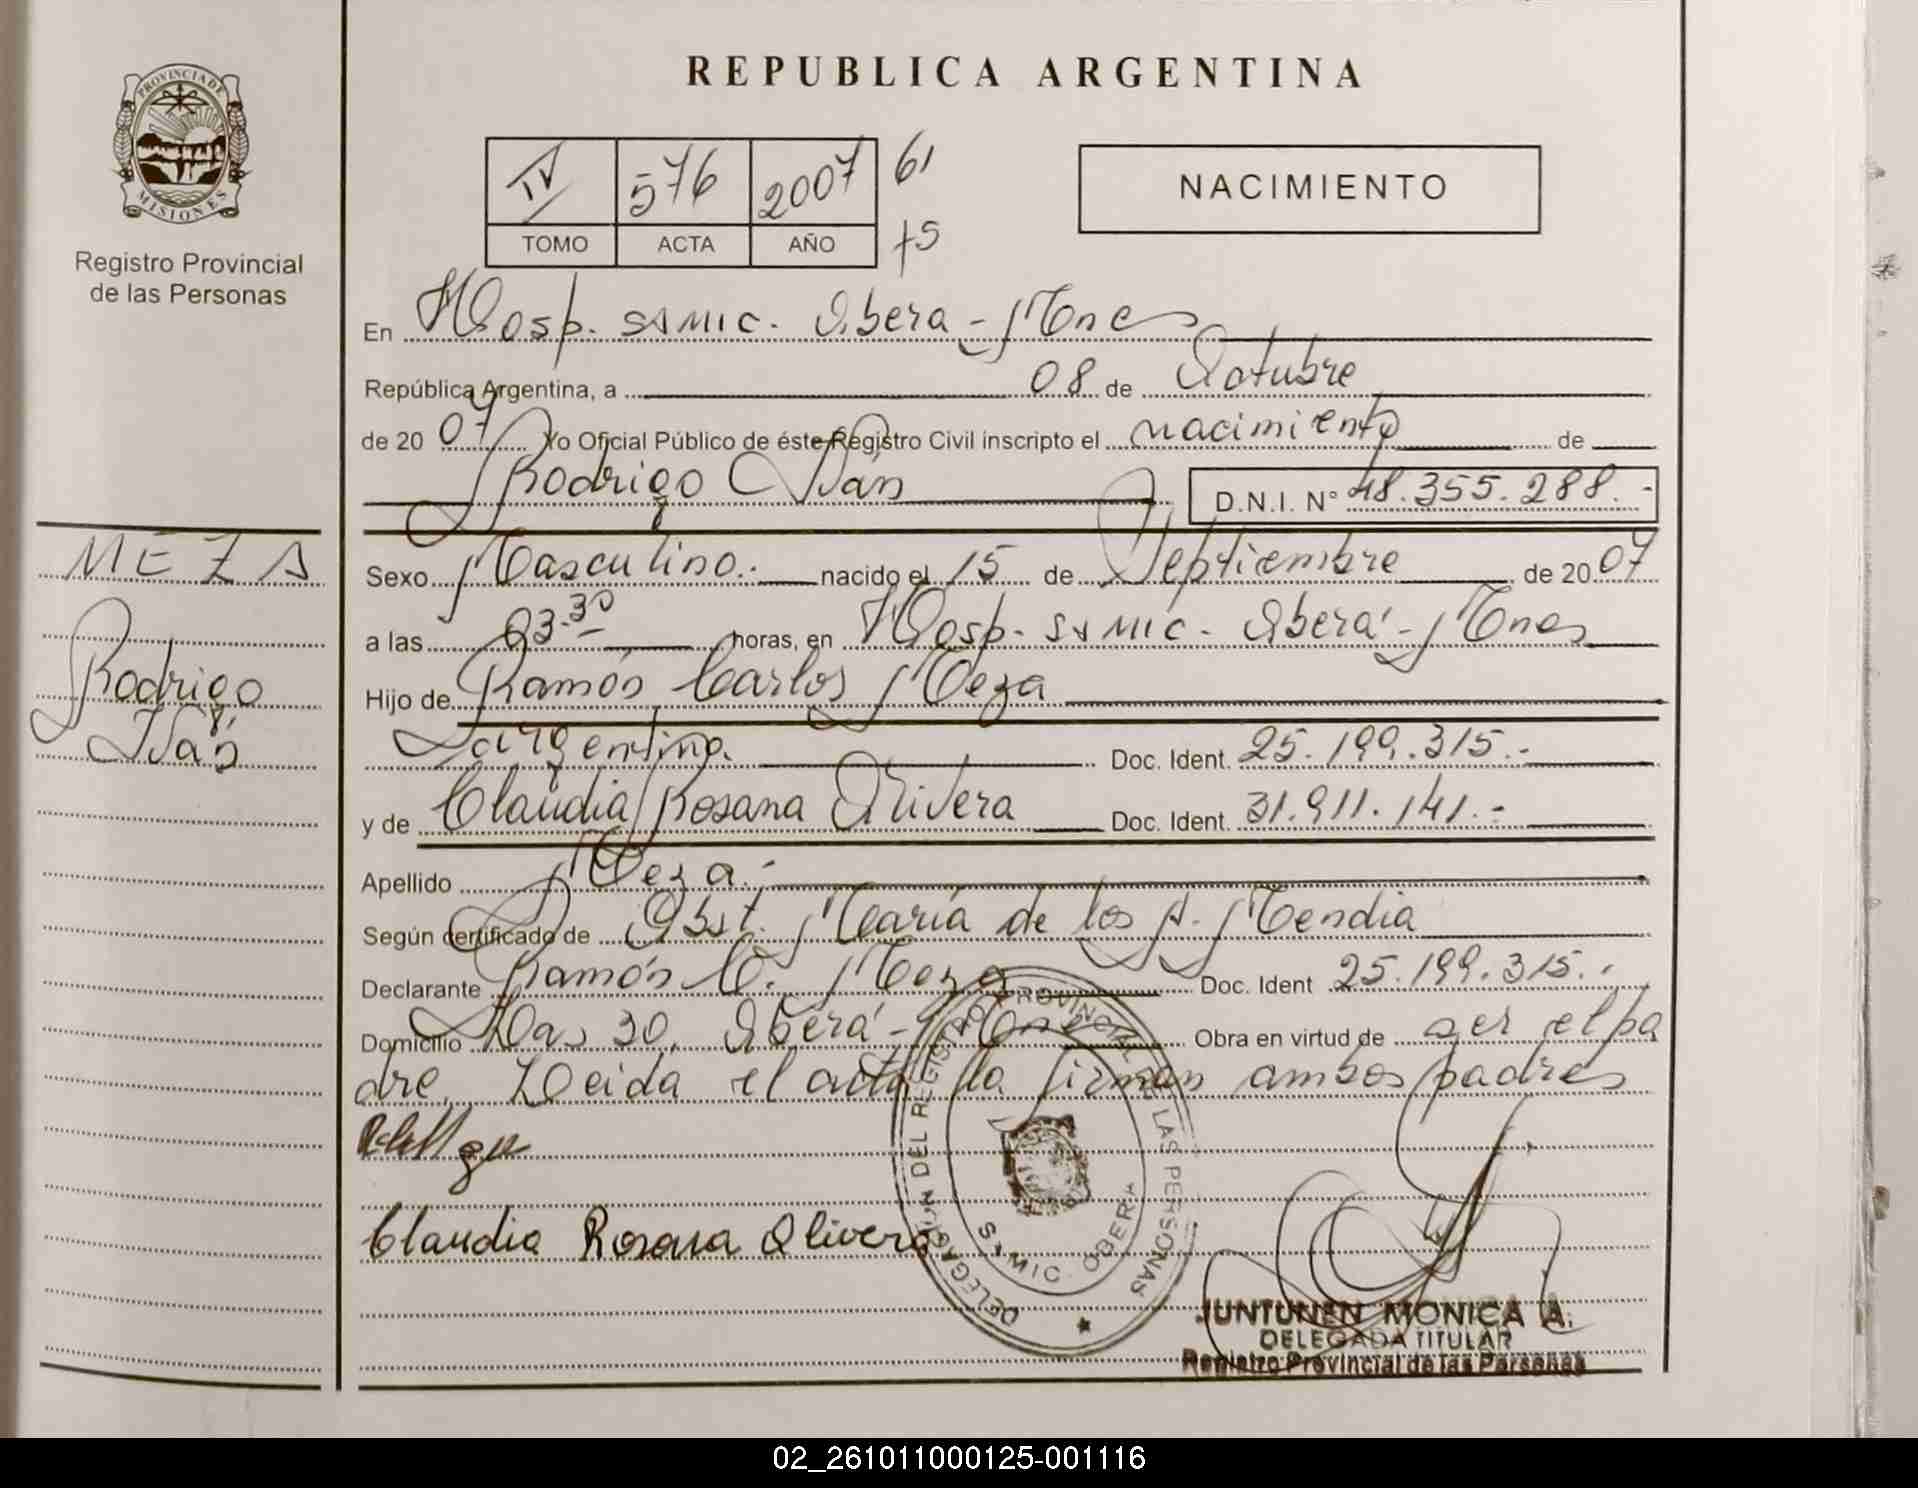 PROVINCIA DE
MISIONES
Registro Provincial
de las Personas
REPUBLICA ARGENTINA
IV 576 2007 61
TOMO ACTA AÑO 75
NACIMIENTO
En Hosp. SAMIC. Oberá - Mnes
República Argentina, a 08 de Octubre
de 20 07 Yo Oficial Público de éste Registro Civil inscripto el nacimiento de
Rodrigo Iván D.N.I. N° 48.355.288.-
MEZA
Rodrigo
Iván
Sexo Masculino.- nacido el 15 de Septiembre de 20 07
a las 03.30 horas, en Hosp. SAMIC. Oberá - Mnes
Hijo de Ramón Carlos Meza
argentina Doc. Ident. 25.199.315.-
y de Claudia Rosana Olivera Doc. Ident. 31.911.141.-
Apellido Meza.-
Según certificado de Obst. María de los A. Mendia
Declarante Ramón C. Meza Doc. Ident 25.199.315.-
Domicilio Oberá - Mnes Obra en virtud de ser el pa
dre. Leida el acta la firman ambos padres
Claudia Rosana Olivera
DELEGACION DEL REGISTRO PROVINCIAL DE LAS PERSONAS
SAMIC. OBERA
JUNTUNEN MONICA A.
DELEGADA TITULAR
Registro Provincial de las Personas
02_261011000125-001116